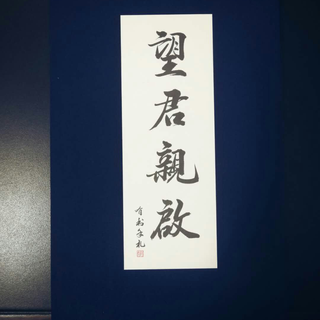 望君親啟